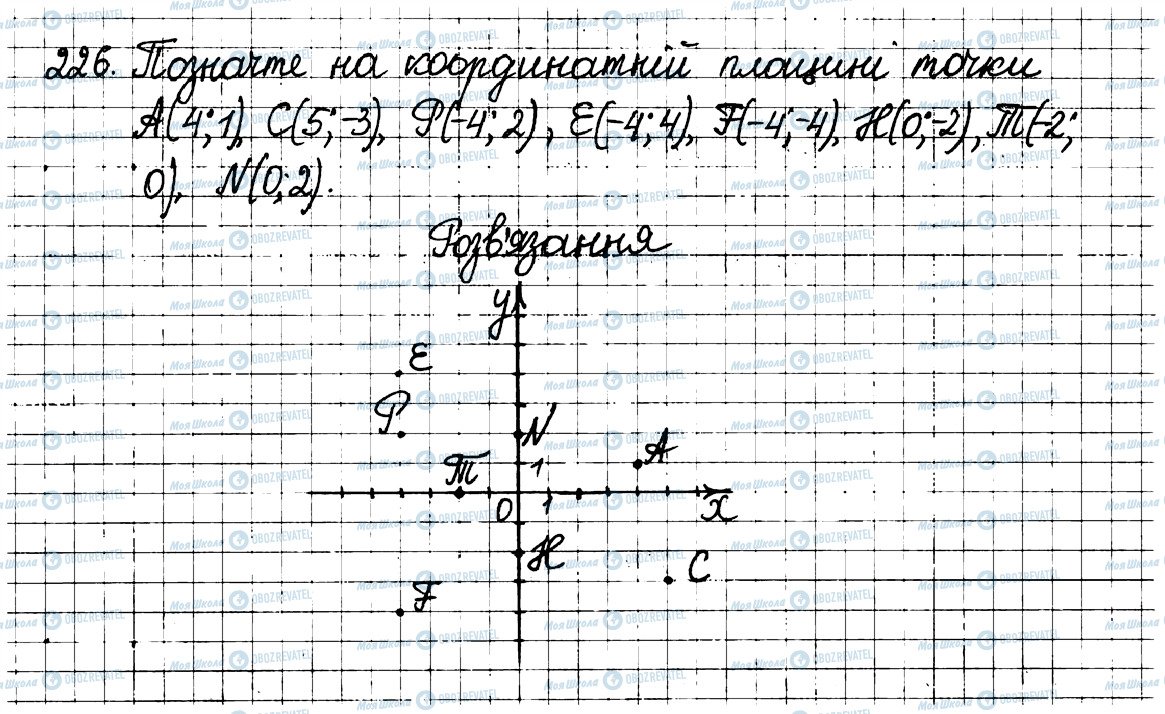 226. Позначте на координатній площині точки
A(4; 1), C(5; -3), P(-4; 2), E(-4; 4), F(-4; -4), H(0; -2), M(-2;
0), N(0; 2).
Розв'язання
y
E
P
N
A
M
1
0
1
x
H
C
F
МояШкола OBOZREVATEL